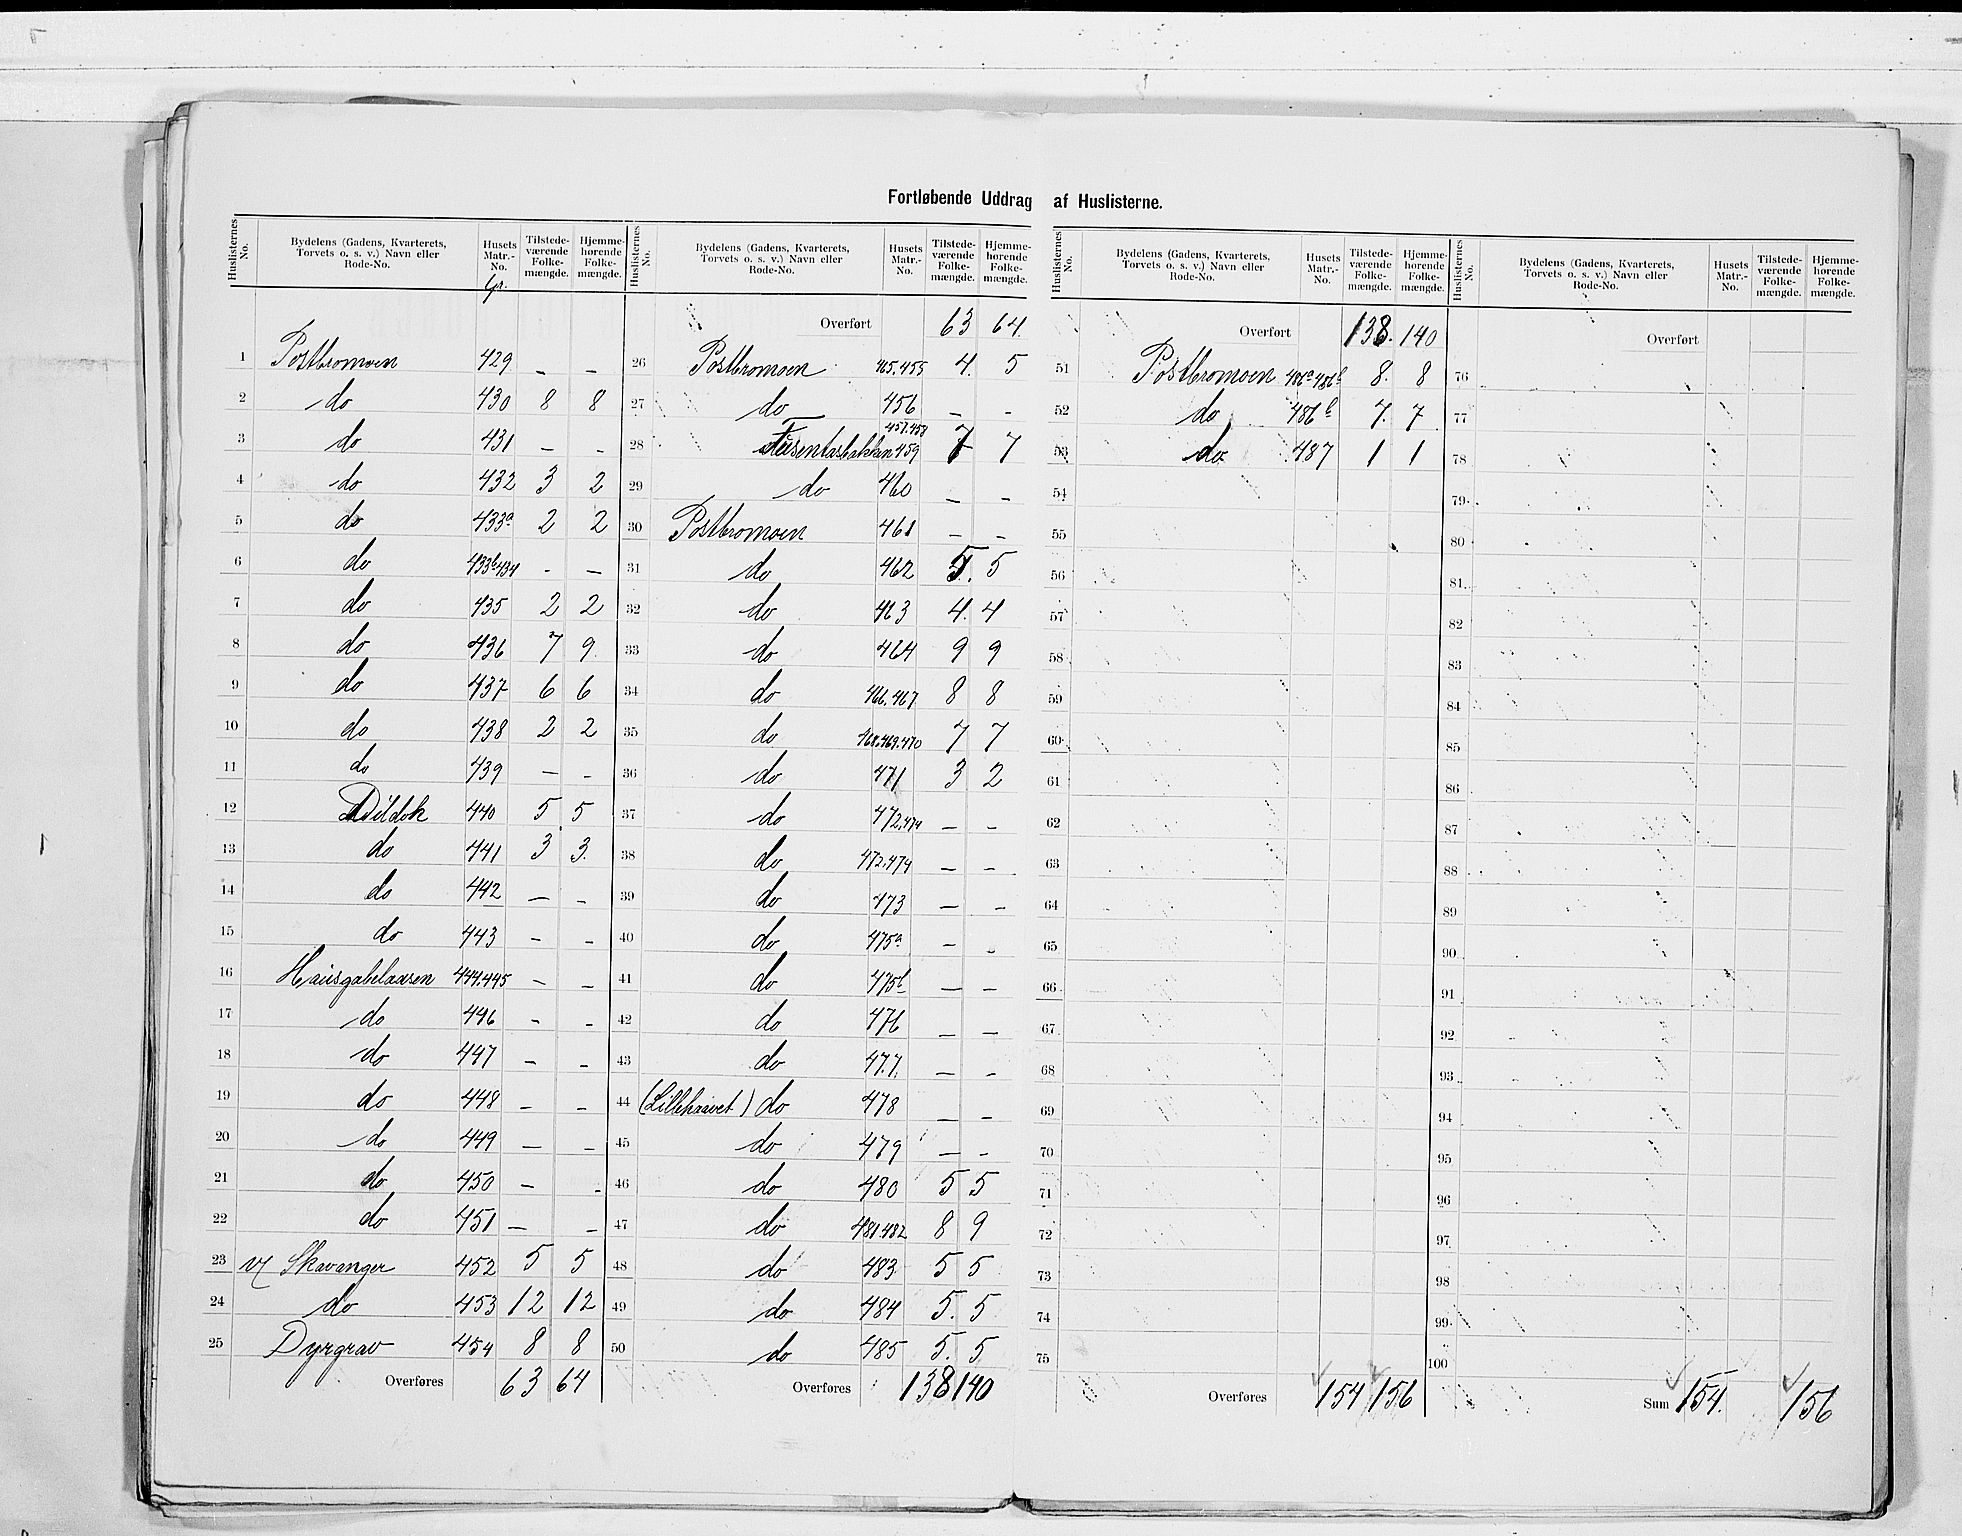 Fortløbende Uddrag af Huslisterne.
Huslisternes No. Bydelens (Gadens, Kvarterets, Torvets o. s. v.) Navn eller Rode-No. Husets Matr.-No. Tilstedeværende Folkemængde. Hjemmehørende Folkemængde.
Gr.
1 Postbromoen 429 – –
2 do 430 8 8
3 do 431 – –
4 do 432 3 2
5 do 433a 2 2
6 do 433b434 – –
7 do 435 2 2
8 do 436 7 9
9 do 437 6 6
10 do 438 2 2
11 do 439 – –
12 440 5 5
13 do 441 3 3
14 do 442 – –
15 do 443 – –
16 444.445 – –
17 do 446 – –
18 do 447 – –
19 do 448 – –
20 do 449 – –
21 do 450 – –
22 do 451 – –
23 v/ Skavanger 452 5 5
24 do 453 12 12
25 Dyrgrav 454 8 8
Overføres 63 64
Huslisternes No. Bydelens (Gadens, Kvarterets, Torvets o. s. v.) Navn eller Rode-No. Husets Matr.-No. Tilstedeværende Folkemængde. Hjemmehørende Folkemængde.
Overført 63 64.
26 Postbromoen 465.455 4. 5
27 do 456 – –
28 457.458 459 7 7
29 do 460 – –
30 Postbromoen 461 – –
31 do 462 5. 5
32 do 463 4. 4
33 do 464 9 9
34 do 466.467 8 8
35 do 468.469.470 7 7
36 do 471 3 2
37 do 472.474 – –
38 do 472.474 – –
39 do 473 – –
40 do 475a – –
41 do 475b – –
42 do 476 – –
43 do 477. – –
44 (Lillehaavet) do 478 – –
45 do 479 – –
46 do 480 5 5
47 do 481.482 8 9
48 do 483 5 5
49 do 484 5. 5
50 do 485 5. 5
Overføres 138 140
Huslisternes No. Bydelens (Gadens, Kvarterets, Torvets o. s. v.) Navn eller Rode-No. Husets Matr.-No. Tilstedeværende Folkemængde. Hjemmehørende Folkemængde.
Overført 138. 140
51 Postbromoen 486a486b 8. 8
52 do 486b 7. 7
53 do 487 1 1
54
55
56
57
58
59
60
61
62
63
64
65
66
67
68
69
70
71
72
73
74
75
Overføres 154 156
Huslisternes No. Bydelens (Gadens, Kvarterets, Torvets o. s. v.) Navn eller Rode-No. Husets Matr.-No. Tilstedeværende Folkemængde. Hjemmehørende Folkemængde.
Overført
76
77
78
79
80
81
82
83
84
85
86
87
88
89
90
91
92
93
94
95
96
97
98
99
100
Sum 154. 156